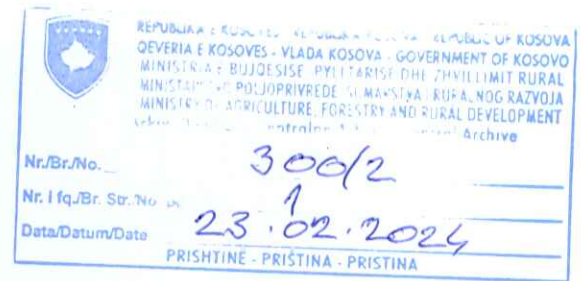 REPUBLIKA E KOSOVËS - REPUBLIKA KOSOVA - REPUBLIC OF KOSOVA
QEVERIA E KOSOVES - VLADA KOSOVA - GOVERNMENT OF KOSOVO
MINISTRIA E BUJQESISE PYLLTARISE DHE ZHVILLIMIT RURAL
MINISTARSTVO POLJOPRIVREDE ŠUMARSTVA I RURALNOG RAZVOJA
MINISTRY OF AGRICULTURE, FORESTRY AND RURAL DEVELOPMENT
Archive
Nr./Br./No. 300/2
Nr. i fq./Br. Str./No 1
Data/Datum/Date 23.02.2024
PRISHTINË - PRIŠTINA - PRISTINA